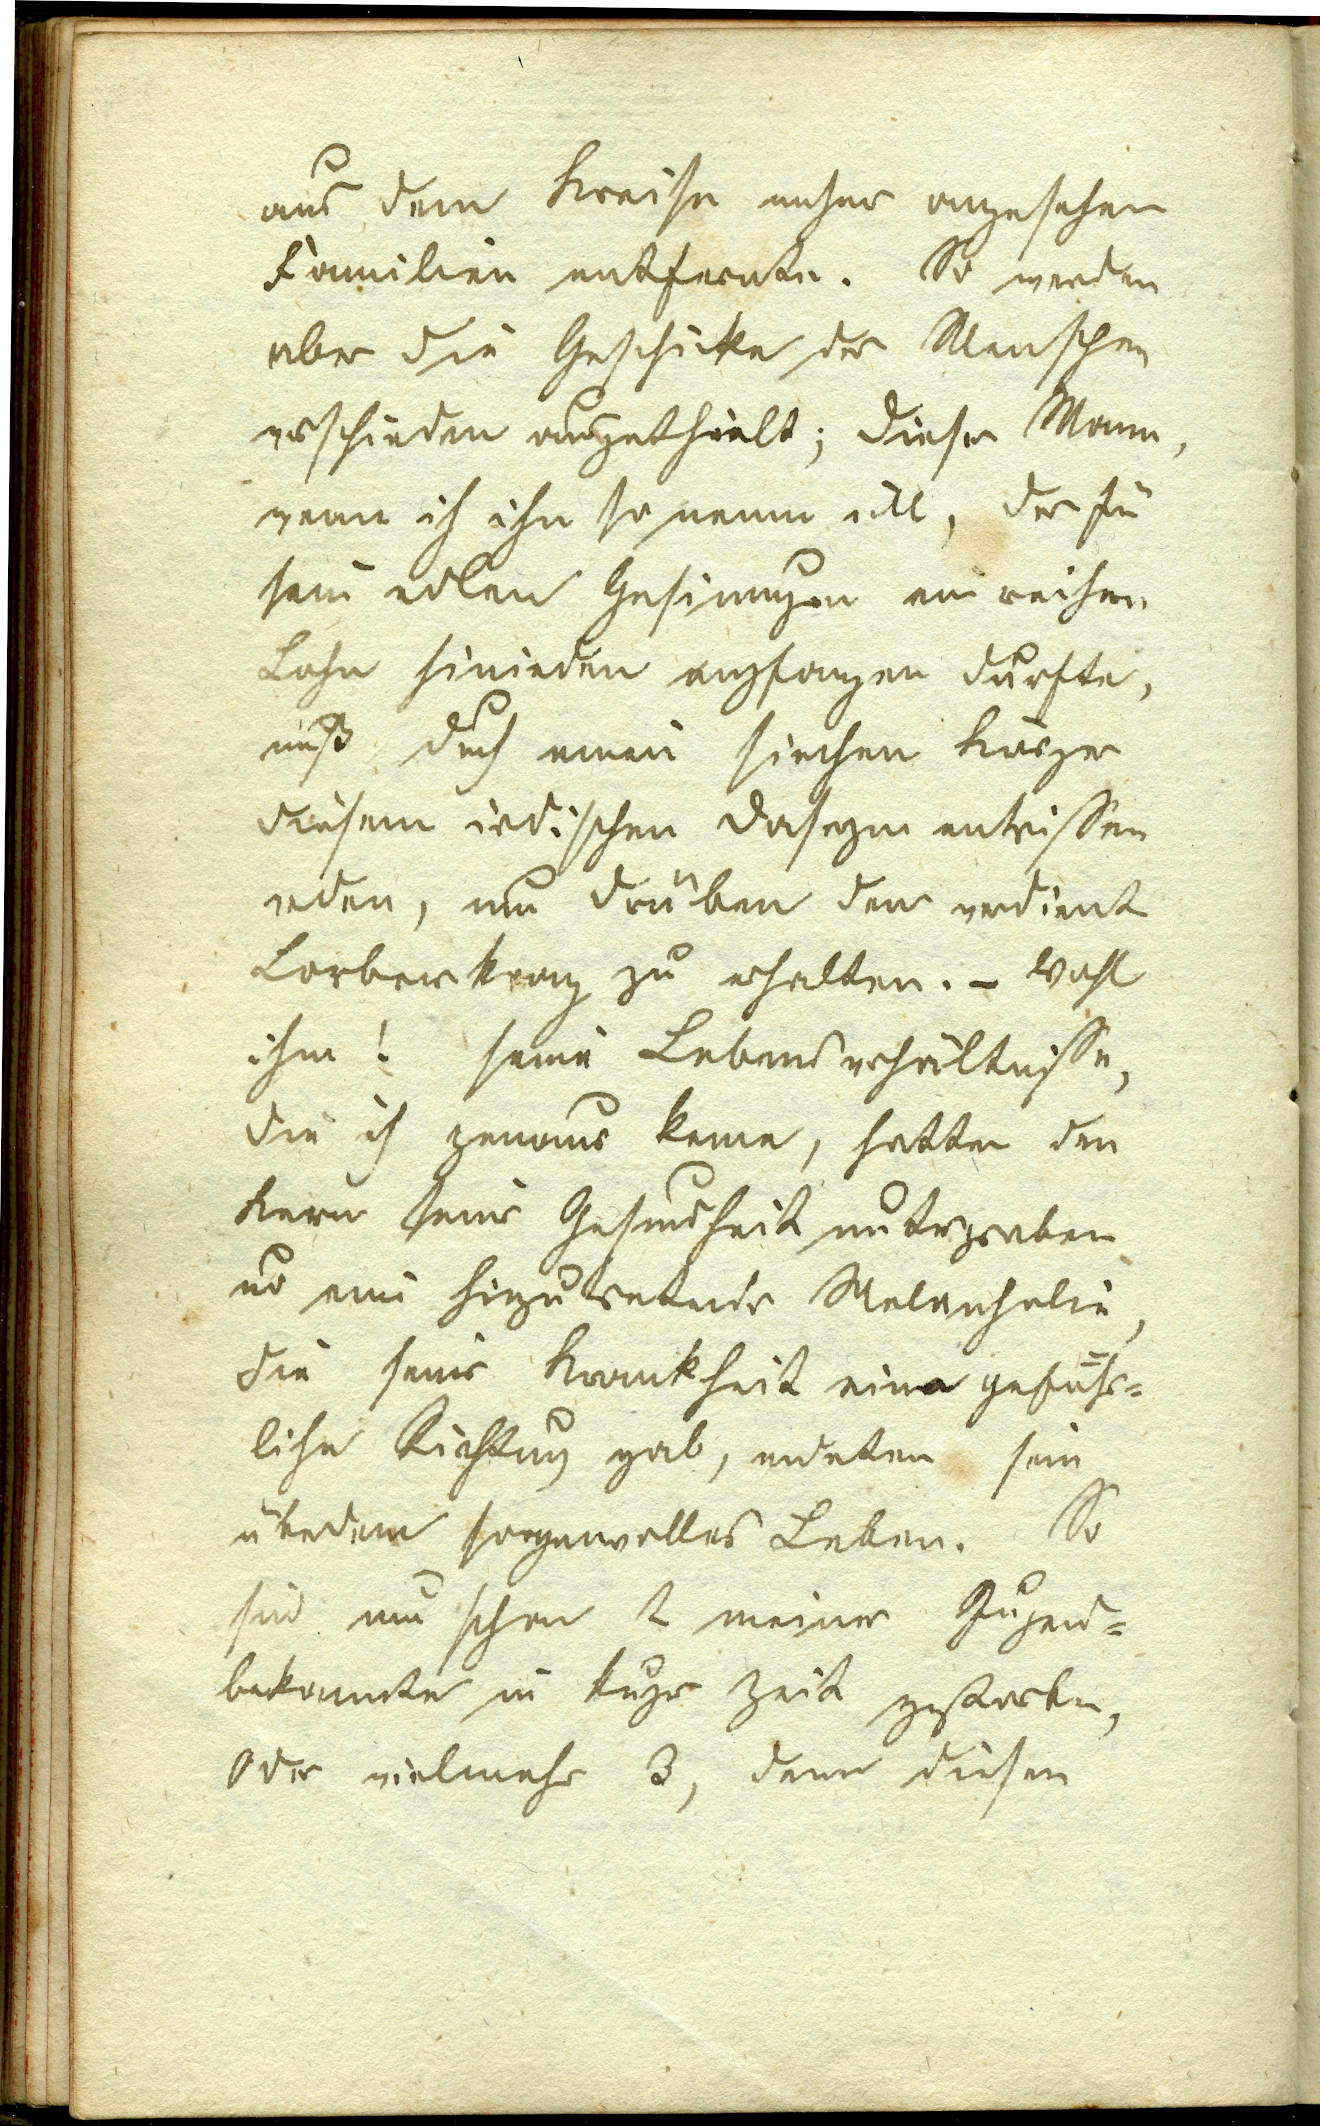 aus dem Kreise unser angesehen
Familien entfernte. So werden
aber die Geschicke der Menschen
verschieden ausgetheilt; dieser Mann,
wenn ich ihn so nennen will, der für
seine edlen Gesinnungen ein reichen
Lohn hinieden empfangen durfte,
muß durch einen siechen Körper
diesem irdischen Daseyn entrissen
werden, um drüben den verdient
Lorberkranz zu erhalten. – Wohl
ihm! seine Lebensverhältnisse,
die ich genau kenne, hatten den
Kern seiner Gesundheit untergraben
und eine hinzutretende Melancholie,
die seiner Krankheit eine gefähr=
liche Richtung gab, endeten sein
überdem sorgenvolles Leben. So
sind nun schon 2 meiner Jugend=
bekannten in kurzer Zeit gestorben,
oder vielmehr 3, denn diesen